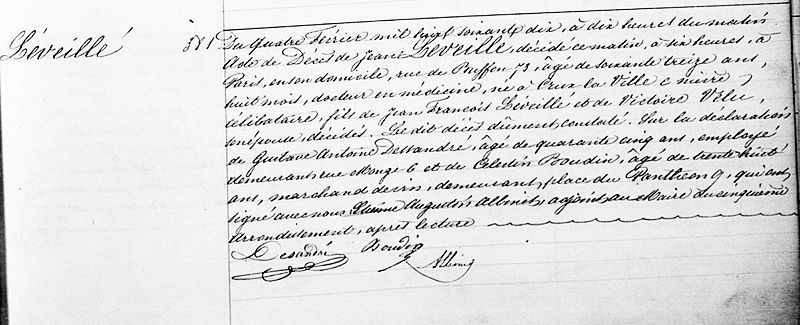 Léveillé
581
Du Quatre Février mil huit soixante dix, à dix heures du matin.
Acte de Décès de Jean Léveillé, décédé ce matin, à six heures, à
Paris, en son domicile, rue de Buffon 73, âgé de soixante treize ans,
huit mois, docteur en médecine, né à Crux la Ville (Nièvre)
célibataire, fils de Jean François Léveillé et de Victoire Velu,
son épouse, décédés. Le dit décès dûment constaté. Sur la déclaration
de Gustave Antoine Dessandré, âgé de quarante cinq ans, employé
demeurant rue Monge 6 et de Célestin Boudin, âgé de trente huit
ans, marchand de vins, demeurant, place du Panthéon 9, qui ont
signé avec nous Etienne Augustin Albinet, adjoint au Maire du cinquième
Arrondissement, après lecture
Desandré Boudin
Albinet